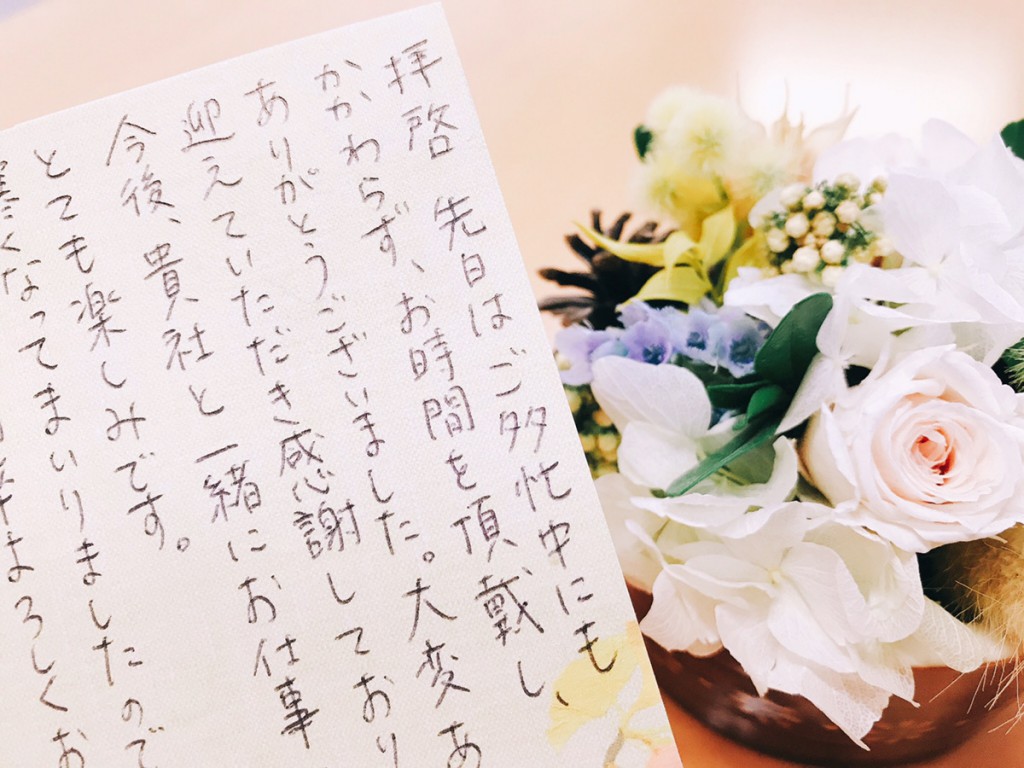 拝啓 先日はご多忙中にも、
かかわらず、お時間を頂戴し
ありがとうございました。大変あ
迎えていただき感謝しており
今後、貴社と一緒にお仕事
とても楽しみです。
寒くなってまいりましたので
よろしくお